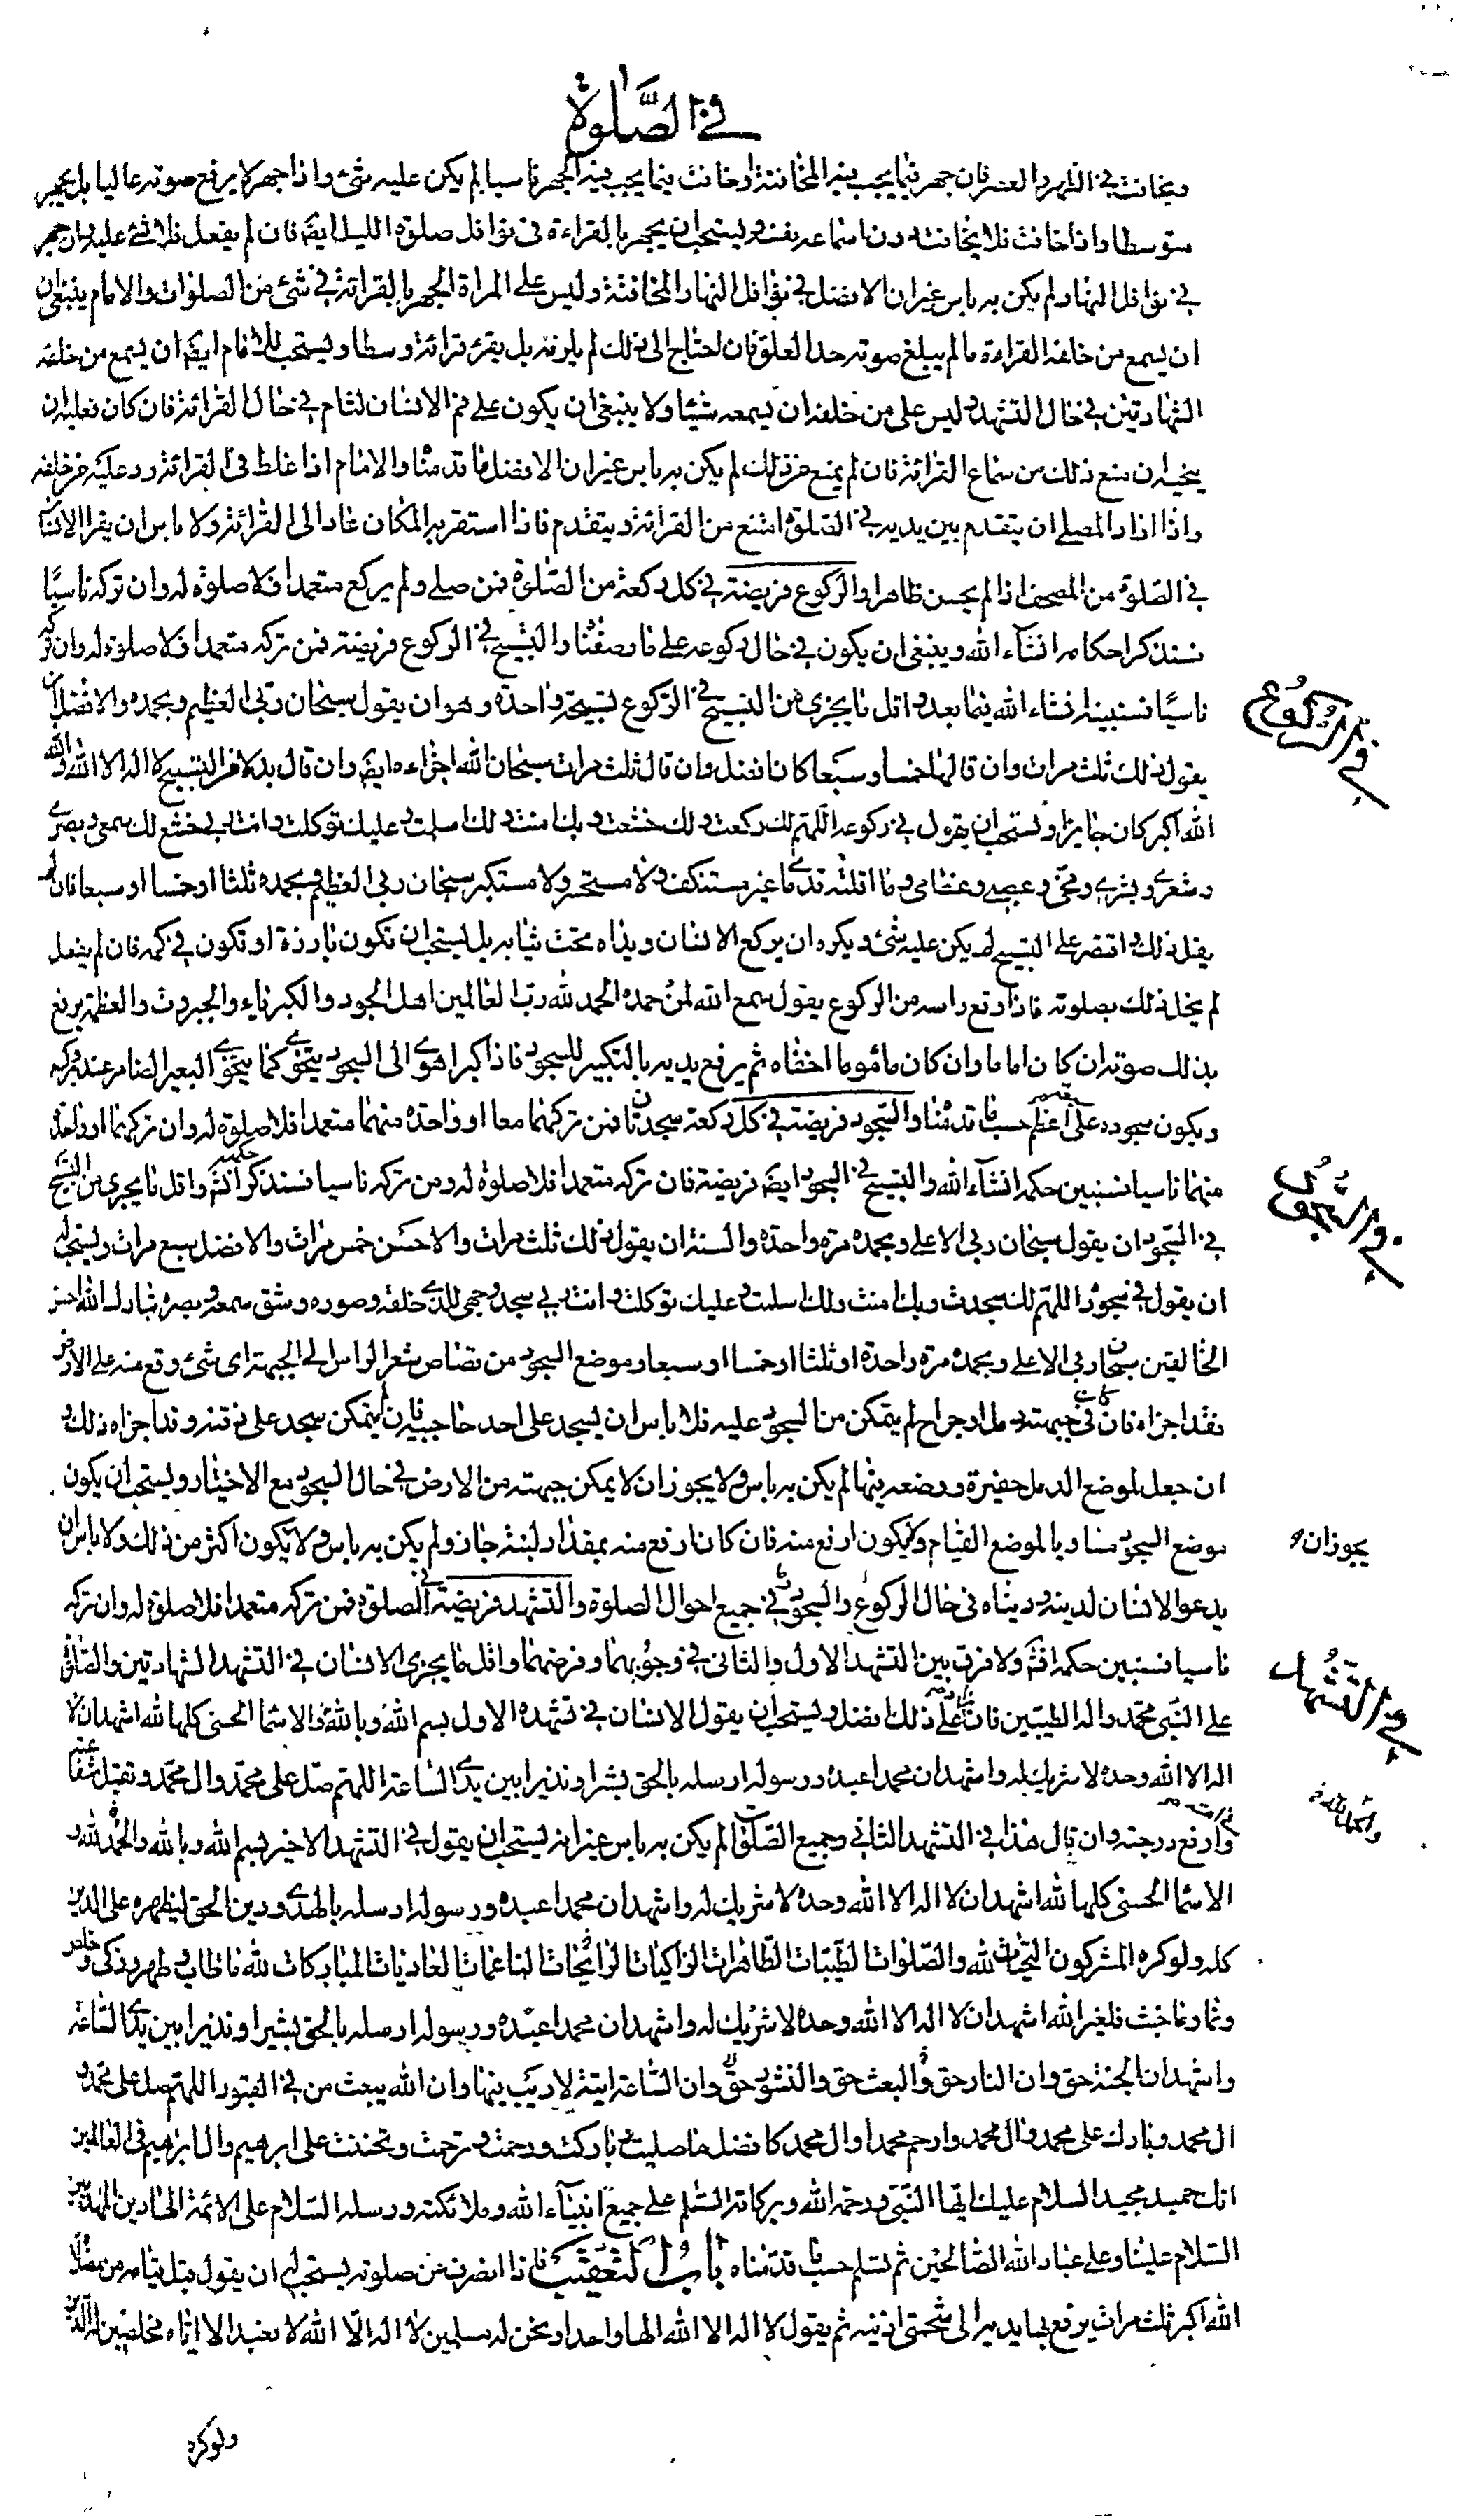 في الصلوة
ويخافت في الظهر والعصر فان جهر فيما يجب فيه المخافتة او خافت فيما يجب فيه الجهر ناسيا لم يكن عليه شئ واذا جهر لا يرفع صوته عاليا بل يجهر
متوسطا واذا خافت فلا يخافت دون اسماعه نفسه ويستحب ان يجهر بالقراءة في نوافل صلوة الليل ايضا فان لم يفعل فلا شئ عليه وان جهر
في نوافل النهار لم يكن به باس غير ان الافضل في نوافل النهار المخافتة وليس على المراة الجهر بالقرائة في شئ من الصلوات والامام ينبغي ان
ان يسمع من خلفه القراءة ما لم يبلغ صوته حد العلو فان احتاج الى ذلك لم يلزمه بل يقرء قرائة وسطا ويستحب للامام ايضا ان يسمع من خلفه
الشهادتين في حال التشهد وليس على من خلفه ان يسمعه شيئا ولا ينبغي ان يكون على فم الانسان لثام في حال القرائة فان كان فعليه ان
ينحيه ان منع ذلك من سماع القرائة فان لم يمنع من ذلك لم يكن به باس غير ان الافضل ما قدمناه والامام اذا غلط في القرائة رد عليه من خلفه
واذا اراد المصلي ان يتقدم بين يديه في الصلوة امتنع من القرائة ويتقدم فاذا استقر به المكان عاد الى القرائة ولا باس ان يقرا الانسان
في الصلوة من المصحف اذا لم يحسن ظاهرا والركوع فريضة في كل ركعة من الصلوة فمن صلى ولم يركع متعمدا فلا صلوة له وان تركه ناسيا
فسنذكر احكامه انشاء الله وينبغي ان يكون في حال ركوعه على ما وصفنا والتسبيح في الركوع فريضة فمن تركه متعمدا فلا صلوة له وان تركه
ناسيا فسنبينه انشاء الله فيما بعد واقل ما يجزي من التسبيح في الركوع تسبيحة واحدة وهو ان يقول سبحان ربي العظيم وبحمده والافضل ان
في الركوع
يقول ذلك ثلث مرات وان قالها خمسا وسبعا كان افضل وان قال ثلث مرات سبحان الله اجزاءه ايضا وان قال بدلا من التسبيح لا اله الا الله والله
الله اكبر كان جايزا ويستحب ان يقول في ركوعه اللهم لك ركعت ولك خشعت وبك امنت ولك اسلمت وعليك توكلت وانت ربي خشع لك سمعي وبصري
وشعري وبشري ومخي وعصبي وعظامي وما اقلته قدماي غير مستنكف ولا مستحسر ولا مستكبر سبحان ربي العظيم وبحمده ثلثا او خمسا او سبعا فان لم
يفعل ذلك واقتصر على التسبيح لم يكن عليه شئ ويكره ان يركع الانسان ويداه تحت ثيابه بل يستحب ان تكون بارزة او تكون في كمه فان لم يفعل
لم يخل ذلك بصلوته فاذا رفع راسه من الركوع يقول سمع الله لمن حمده الحمد لله رب العالمين اهل الجود والكبرياء والجبروت والعظمة يرفع
بذلك صوته ان كان اماما وان كان ماموما اخفاه ثم يرفع يديه بالتكبير للسجود فاذا كبر اهوى الى السجود يتخوى كما يتخوى البعير الضامر عند بركه
ويكون سجوده على سبعة اعظم حسب ما قدمناه والسجود فريضة في كل ركعة سجدتان فمن تركهما معا او واحدة منهما متعمدا فلا صلوة له وان تركهما او واحدة
منهما ناسيا فسنبين حكمه انشاء الله والتسبيح في السجود ايضا فريضة فان تركه متعمدا فلا صلوة له ومن تركه ناسيا فسنذكر حكمه انشاء الله واقل ما يجزي من التسبيح
في السجود
في السجود ان يقول سبحان ربي الاعلى وبحمده مرة واحدة والسنة ان يقول ذلك ثلث مرات والاحسن خمس مرات والافضل سبع مرات ويستحب له
ان يقول في سجوده اللهم لك سجدت وبك امنت ولك اسلمت وعليك توكلت وانت ربي سجد وجهي للذي خلقه وصوره وشق سمعه وبصره تبارك الله احسن
الخالقين سبحان ربي الاعلى وبحمده مرة واحدة او ثلثا او خمسا او سبعا وموضع السجود من قصاص شعر الراس الى الجبهة اى شئ وقع منه على الارض
فقد اجزاه فان كان في جبهته دمل او جراح لم يتمكن من السجود عليه فلا باس ان يسجد على احد حاجبيه فان لم يتمكن سجد على ذقنه وقد اجزاه ذلك و
ان جعل لموضع الدمل حفيرة ووضعه فيها لم يكن به باس ولا يجوز ان لا يمكن جبهته من الارض في حال السجود مع الاختيار ويستحب ان يكون
موضع السجود مساويا لموضع القيام ولا يكون ارفع منه فان كان ارفع منه بمقدار لبنة جاز ولم يكن به باس ولا يكون اكثر من ذلك ولا باس ان
يجوز ان
يدعو الانسان لدينه ودنياه في حال الركوع والسجود وفي جميع احوال الصلوة والتشهد فريضة في الصلوة فمن تركه متعمدا فلا صلوة له وان تركه
ناسيا فسنبين حكمه انشاء الله ولا فرق بين التشهد الاول والثاني في وجوبهما وفرضهما واقل ما يجزي الانسان في التشهد الشهادتين والصلوة
في التشهد
على النبي محمد واله الطيبين فان زاد على ذلك فضل ويستحب ان يقول الانسان في تشهده الاول بسم الله وبالله والاسما الحسنى كلها لله اشهد ان لا
اله الا الله وحده لا شريك له واشهد ان محمدا عبده ورسوله ارسله بالحق بشيرا ونذيرا بين يدي الساعة اللهم صل على محمد وال محمد وتقبل شفاعته
وارفع درجته وان قال هذا في التشهد الثاني وجميع الصلوة لم يكن به باس غير انه يستحب ان يقول في التشهد الاخير بسم الله وبالله والحمد لله و
الاسما الحسنى كلها لله اشهد ان لا اله الا الله وحده لا شريك له واشهد ان محمدا عبده ورسوله ارسله بالهدى ودين الحق ليظهره على الدين
كله ولو كره المشركون التحيات لله والصلوات الطيبات الطاهرات الزاكيات الرائحات الناعمات الغاديات المباركات لله ما طاب وطهر وزكى وخلص
ونما وما خبث فلغير الله اشهد ان لا اله الا الله وحده لا شريك له واشهد ان محمدا عبده ورسوله ارسله بالحق بشيرا ونذيرا بين يدي الساعة
واشهد ان الجنة حق وان النار حق والبعث حق والنشور حق وان الساعة اتية لا ريب فيها وان الله يبعث من في القبور اللهم صل على محمد و
ال محمد وبارك على محمد وال محمد وارحم محمدا وال محمد كافضل ما صليت وباركت ورحمت وترحمت وتحننت على ابرهيم وال ابرهيم في العالمين
انك حميد مجيد السلام عليك ايها النبي ورحمة الله وبركاته السلم على جميع انبياء الله وملائكته ورسله السلام على الائمة الهادين المهديين
السلام علينا وعلى عباد الله الصالحين ثم تسلم حسب ما قدمناه باب التعقيب فاذا انصرف من صلوته يستحب له ان يقول قبل قيامه من مصلاه
الله اكبر ثلث مرات يرفع بها يديه الى شحمتي اذنيه ثم يقول لا اله الا الله الها واحدا ونحن له مسلمين لا اله الا الله لا نعبد الا اياه مخلصين له الدين
ولوكره